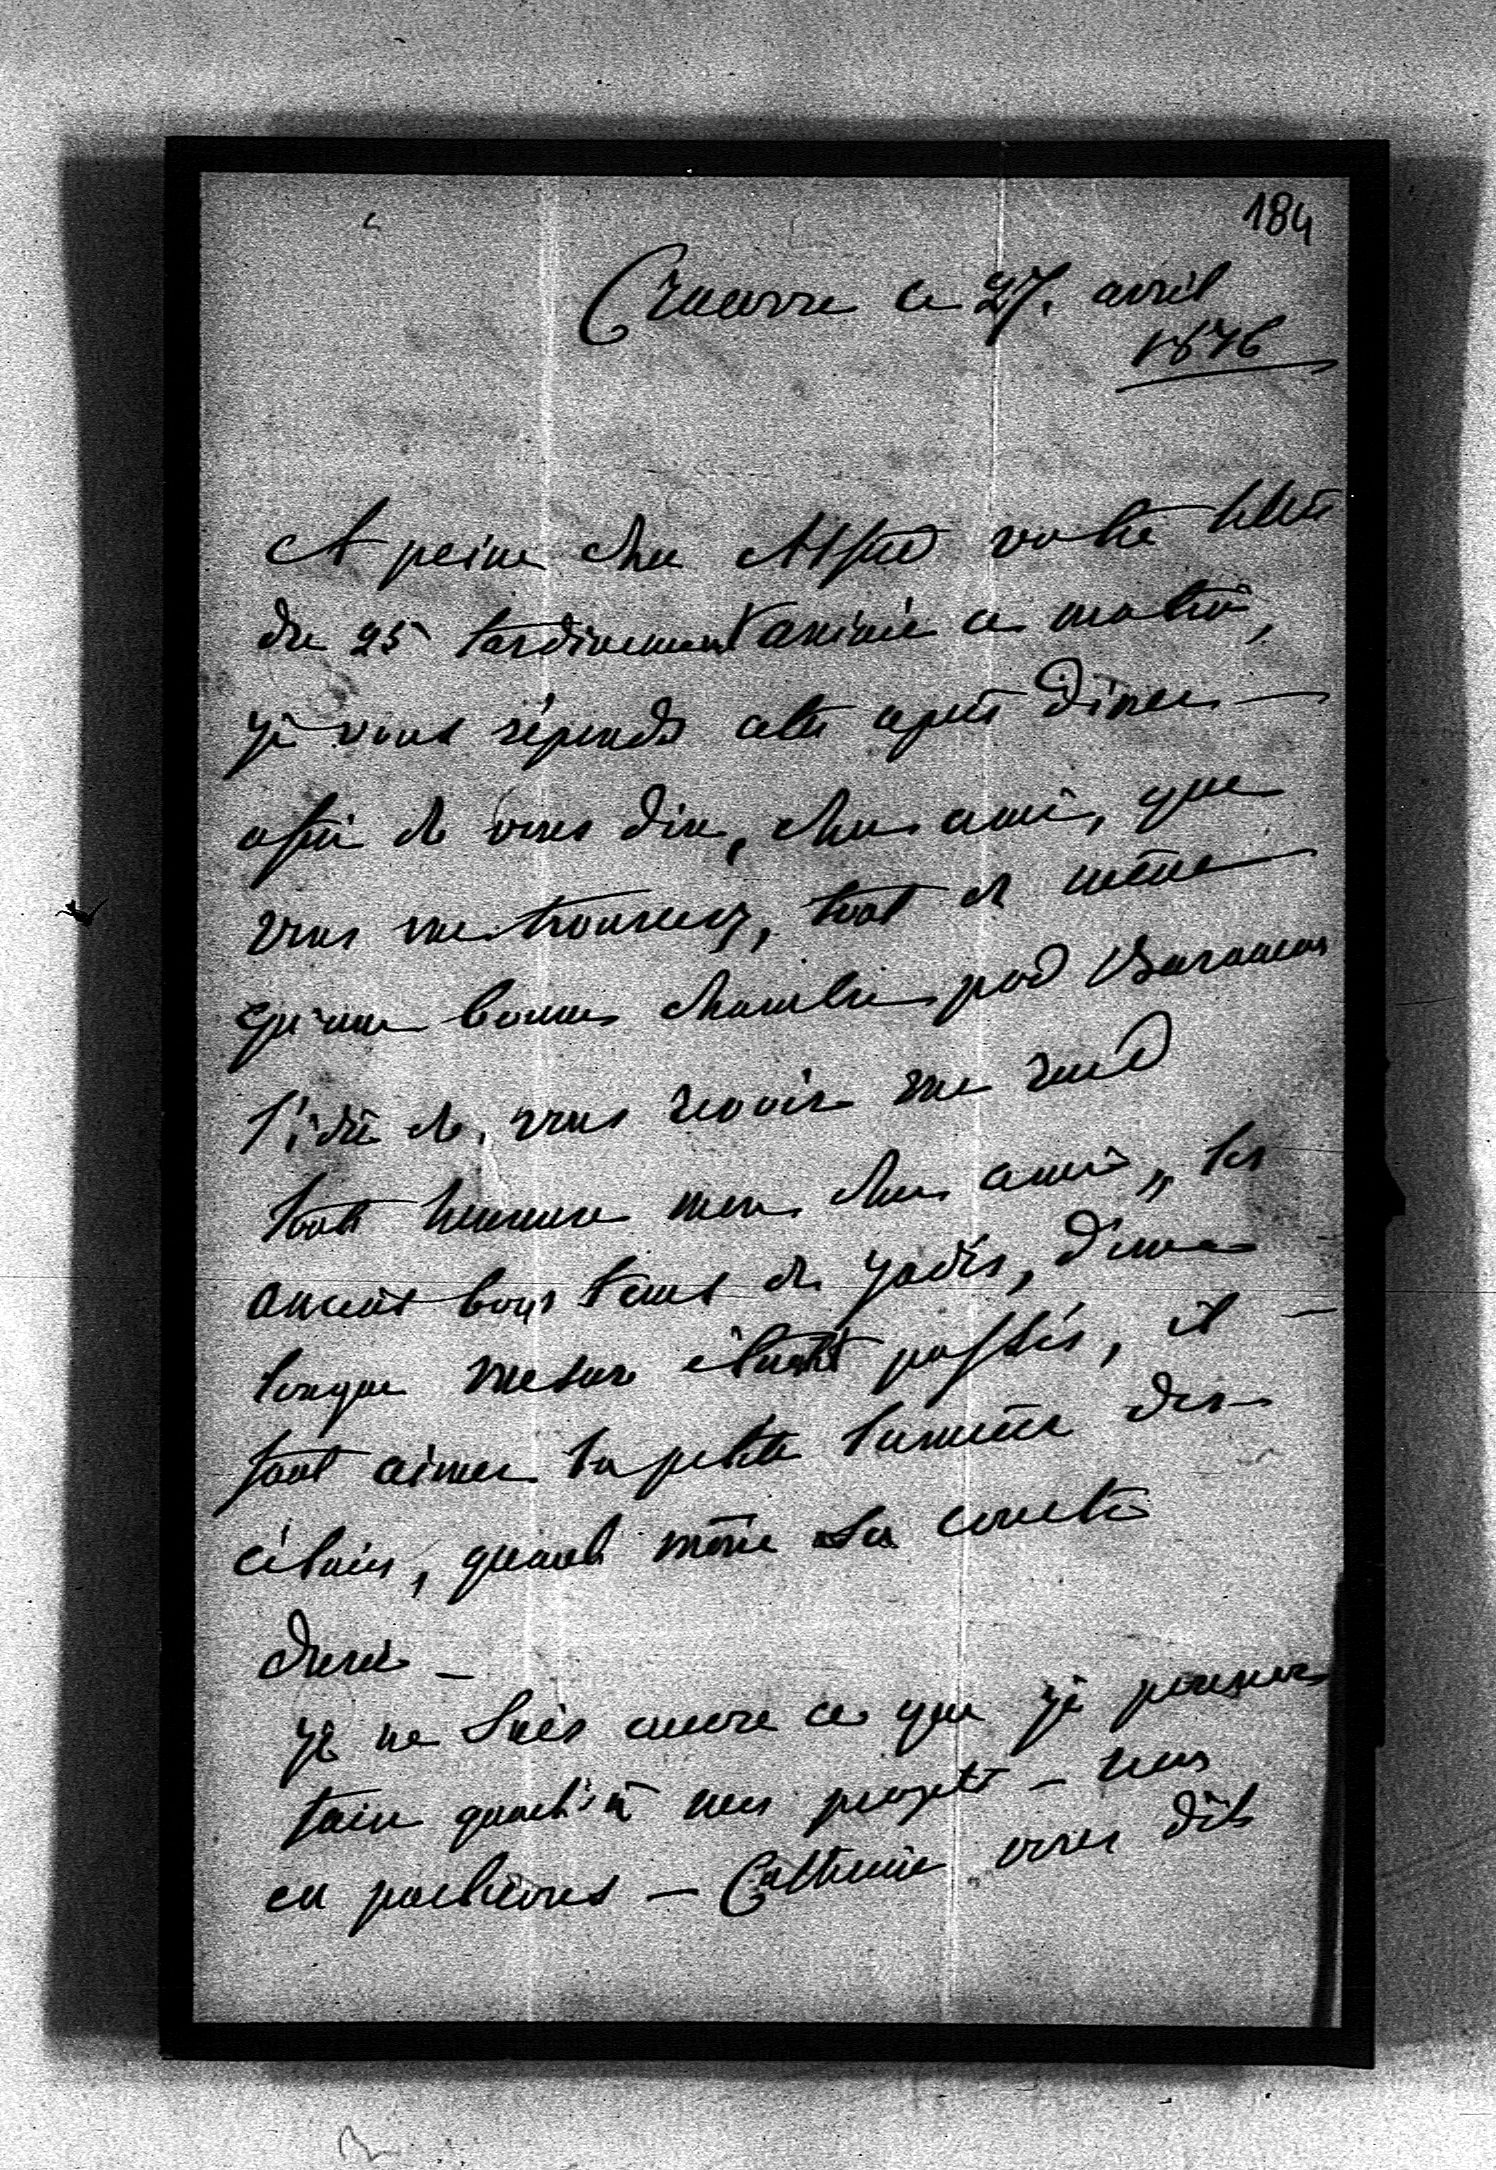 184
Cracovie ce 27. avril
1876
A peine cher Alfred votre lettre
du 25 tardivement arrivée ce matin,
je vous réponds cet après diner —
afin de vous dire, cher ami, que
vous me trouverez, tout de même
qu'une bonne chambre pod Baranem
l'idée de vous revoir me rend
tout heureux mon cher ami, les
anciens bons tems de jadis, d'une
longue mesure étant passés, il —
faut aimer la petite lumière des
éclairs, quand même sa courte
durée —
je ne sais encore ce que je pourrai
faire quant à mes projets — nous
en parlerons — Catherine vous dit